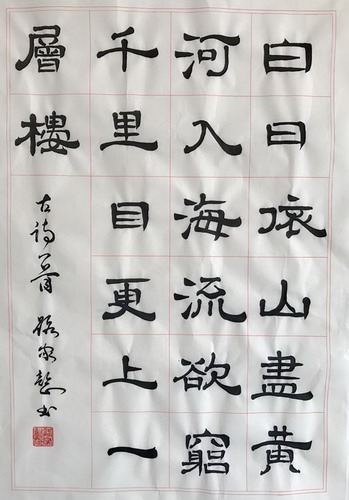 白日依山盡黃
河入海流欲窮
千里目更上一
層樓
古詩一首 張家懿書